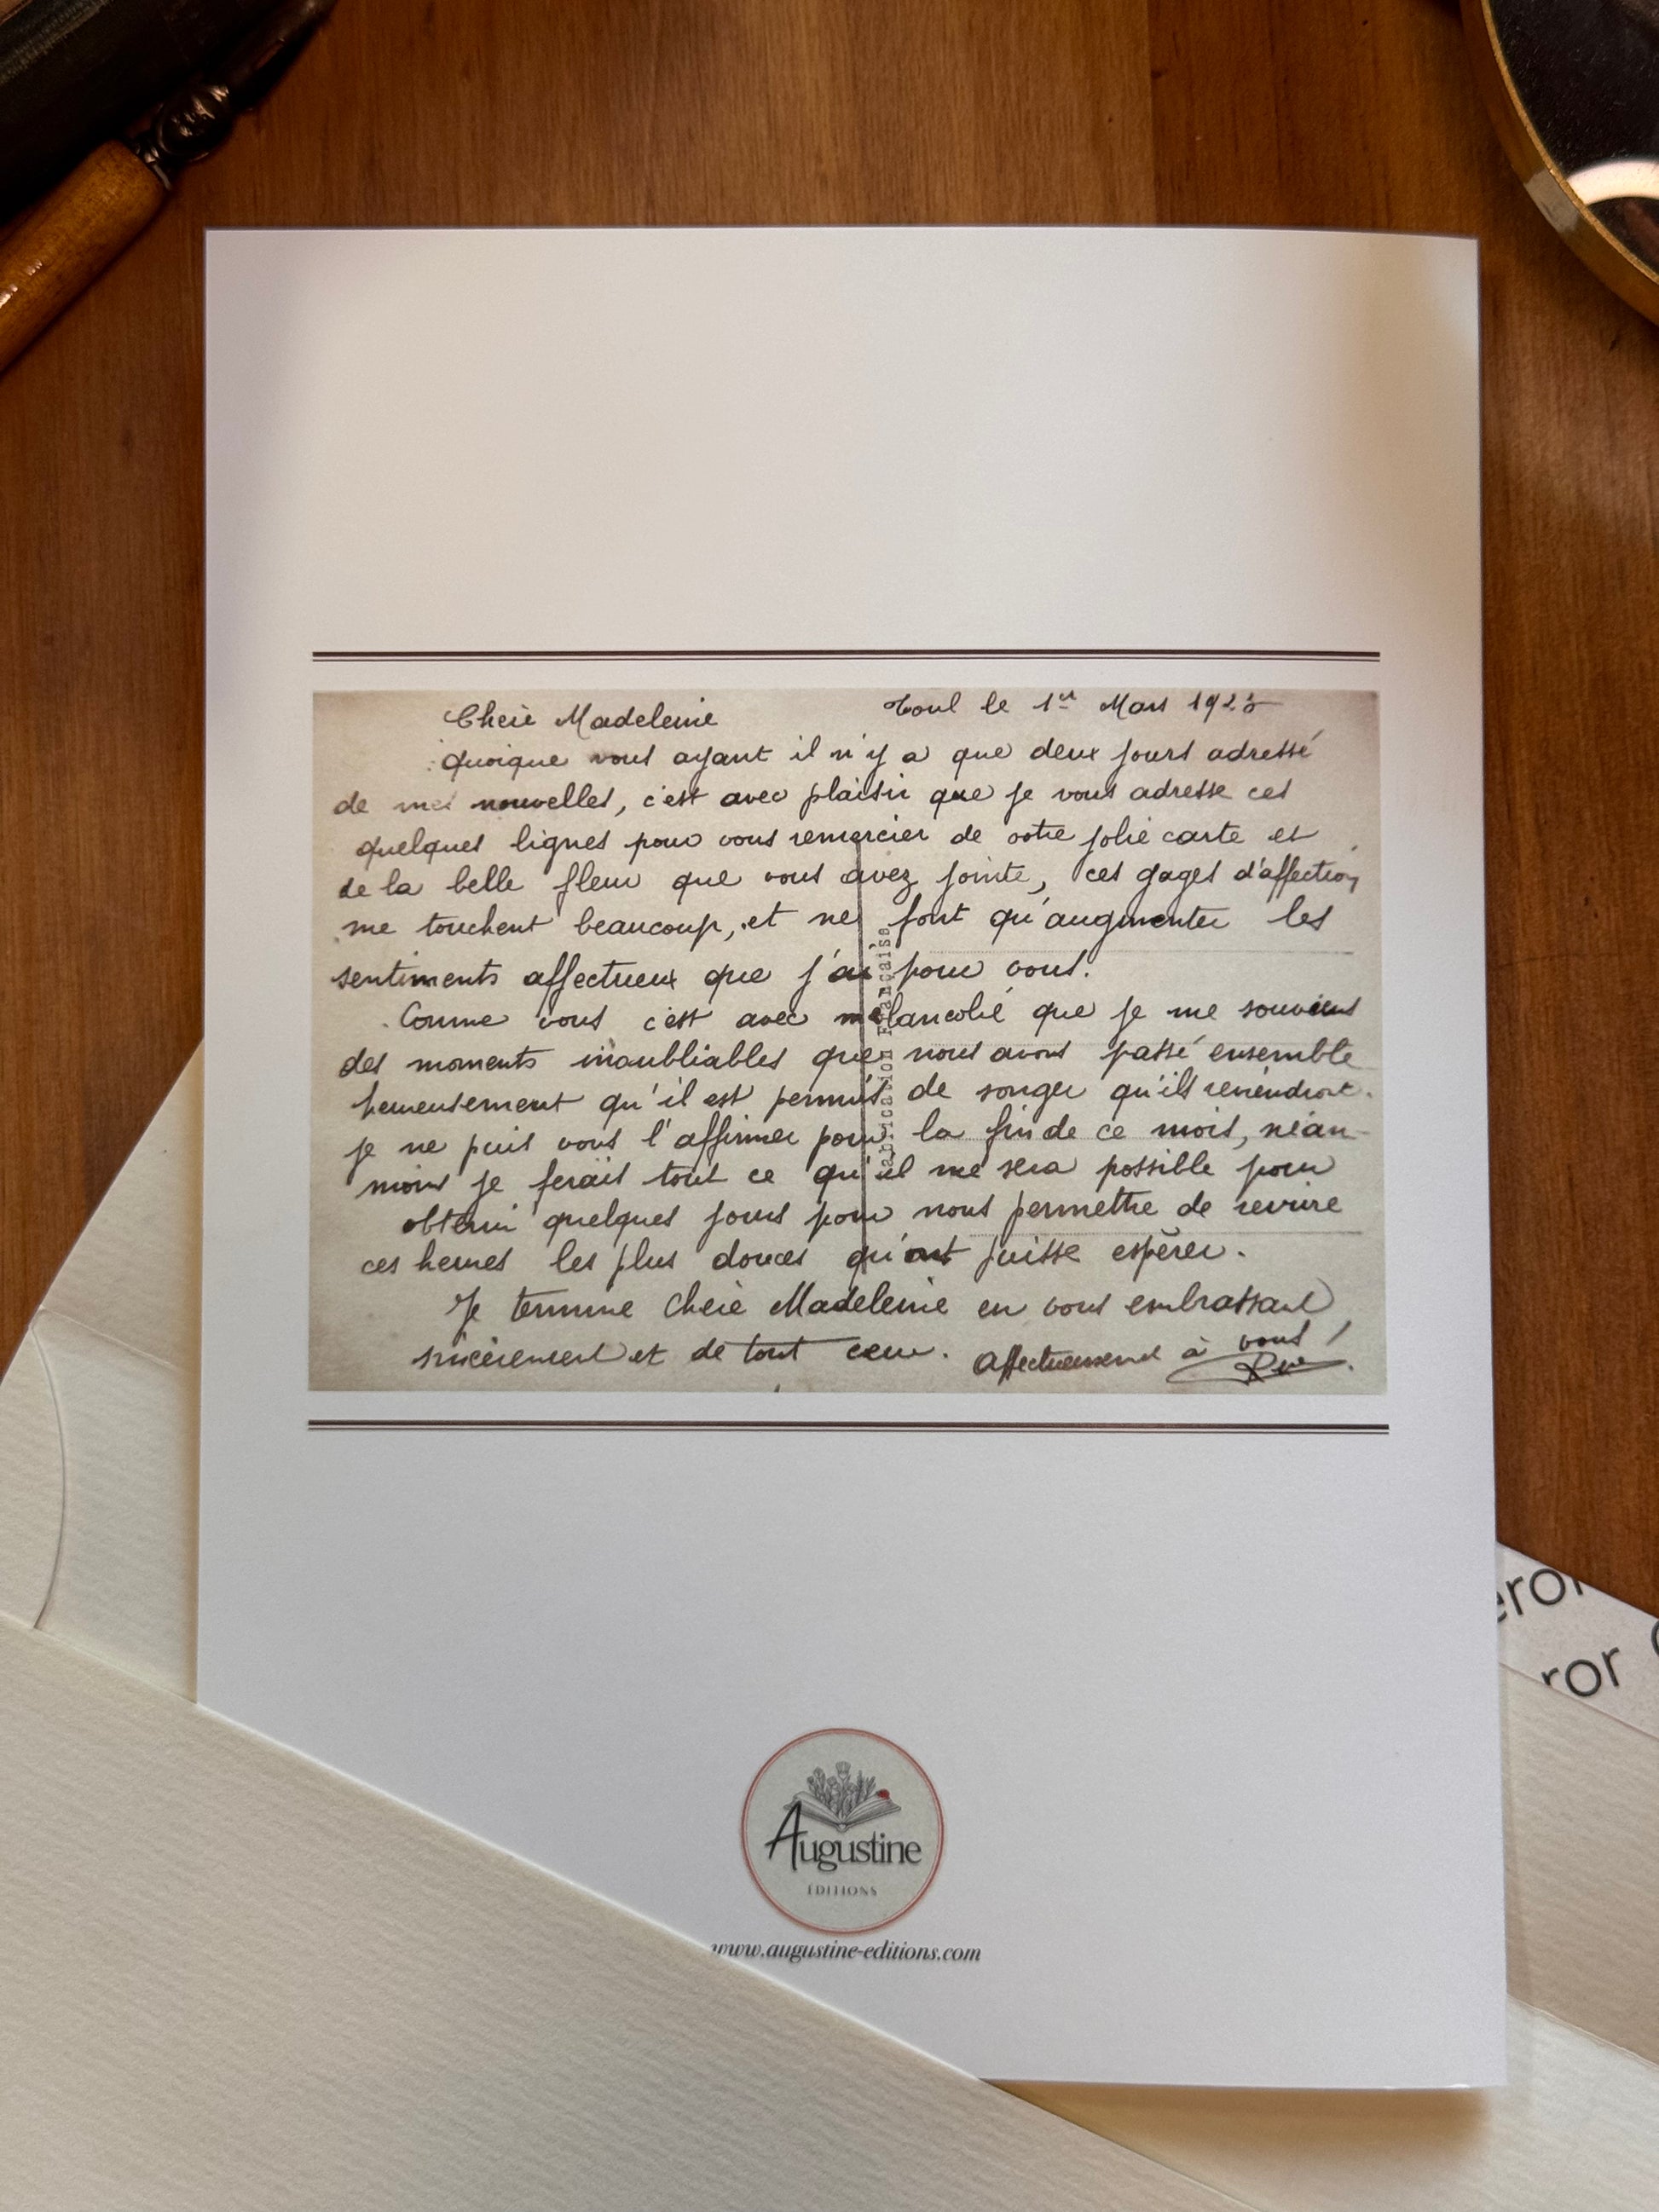 Cherie Madeleine
Toul le 1er Mars 1923
quoique vous ayant il n'y a que deux jours adressé
de mes nouvelles, c'est avec plaisir que je vous adresse ces
quelques lignes pour vous remercier de votre jolie carte et
de la belle fleur que vous avez jointe, ces gages d'affection,
me touchent beaucoup, et ne font qu'augmenter les
sentiments affectueux que j'ai pour vous.
Comme vous c'est avec mélancolie que je me souviens
des moments inoubliables que nous avons passé ensemble
heureusement qu'il est permis de songer qu'ils reviendront.
je ne puis vous l'affirmer pour la fin de ce mois, néan-
moins je ferais tout ce qu'il me sera possible pour
obtenir quelques jours pour nous permettre de revivre
ces heures les plus douces qu'ont puisse espérer.
Je termine Cherie Madeleine en vous embrassant
sincèrement et de tout cœur. Affectueusement à vous !
Fabrication Française
Augustine
ÉDITIONS
www.augustine-editions.com
ror